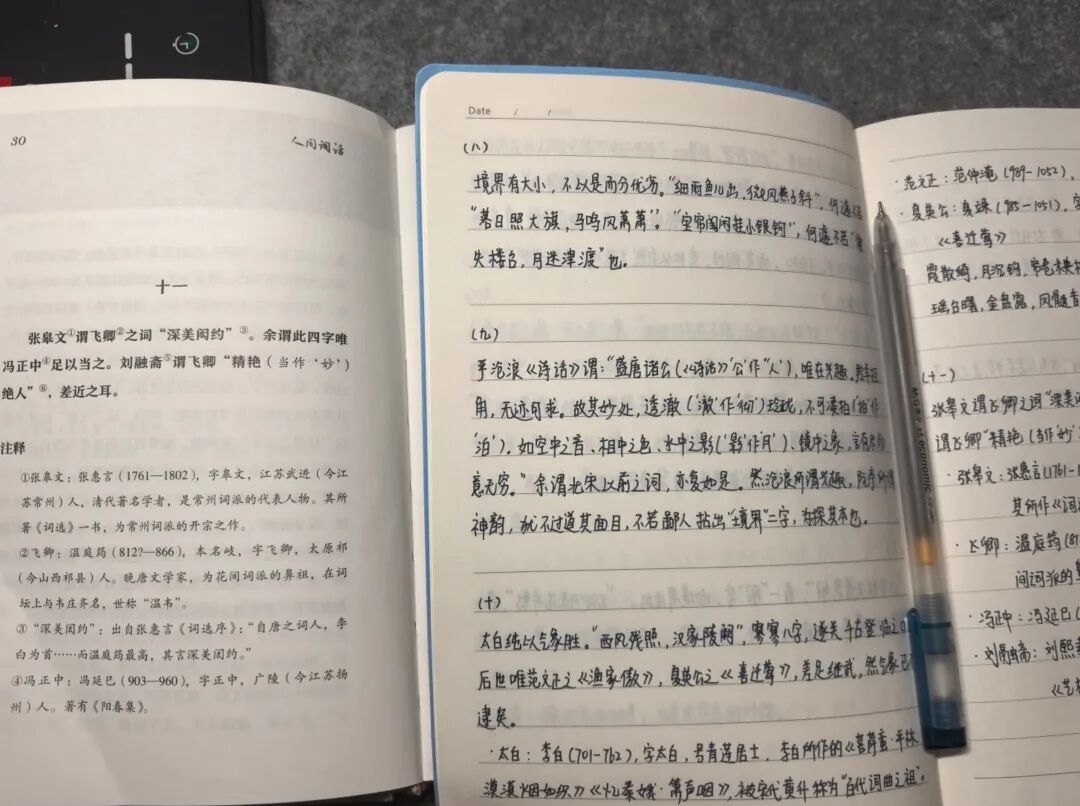 30
人间词话
十一
张皋文①谓飞卿②之词“深美闳约”③。余谓此四字唯
冯正中④足以当之。刘融斋⑤谓飞卿“精艳(当作‘妙’)
绝人”⑥,差近之耳。
注释
①张皋文:张惠言(1761—1802),字皋文,江苏武进(今江
苏常州)人,清代著名学者,是常州词派的代表人物。其所
著《词选》一书,为常州词派的开宗之作。
②飞卿:温庭筠(812?—866),本名岐,字飞卿,太原祁
(今山西祁县)人。晚唐文学家,为花间词派的鼻祖,在词
坛上与韦庄齐名,世称“温韦”。
③“深美闳约”:出自张惠言《词选序》:“自唐之词人,李
白为首……而温庭筠最高,其言深美闳约。”
④冯正中:冯延巳(903—960),字正中,广陵(今江苏扬
州)人。著有《阳春集》。
Date / /
(八)
境界有大小,不以是而分优劣。“细雨鱼儿出,微风燕子斜”,何遽不若
“落日照大旗,马鸣风萧萧”?“宝帘闲挂小银钩”,何遽不若“
失楼台,月迷津渡”也。
(九)
严沧浪《诗话》谓:“盛唐诸公(《诗话》‘公’作“人”),唯在兴趣。羚羊挂
角,无迹可求。故其妙处,透澈(‘澈’作‘彻’)玲珑,不可凑拍(‘拍’作
‘泊’)。如空中之音、相中之色、水中之影(‘影’作‘月’)、镜中之象,言有尽而
意无穷。”余谓北宋以前之词,亦复如是。然沧浪所谓兴趣,阮亭所谓
神韵,犹不过道其面目,不若鄙人拈出“境界”二字,为探其本也。
(十)
太白纯以气象胜。“西风残照,汉家陵阙”,寥寥八字,遂关千古登临之口。
后世唯范文正之《渔家傲》,夏英公之《喜迁莺》,差足继武,然气象已不
逮矣。
·太白:李白(701-762),字太白,号青莲居士,李白所作的《菩萨蛮·平林
漠漠烟如织》《忆秦娥·箫声咽》,被宋代黄升称为“百代词曲之祖”。
·范文正:范仲淹(989-1052),
·夏英公:夏竦(985-1051),字
《喜迁莺》
霞散绮,月沉钩,帘卷未央楼
瑶台曙,金盘露,凤髓香
(十一)
张皋文谓飞卿之词“深美闳
谓飞卿“精艳(当作‘妙’
·张皋文:张惠言(1761-1
其所作《词
·飞卿:温庭筠(81
间词派的鼻
·冯正中:冯延巳(
·刘融斋:刘熙
《艺概